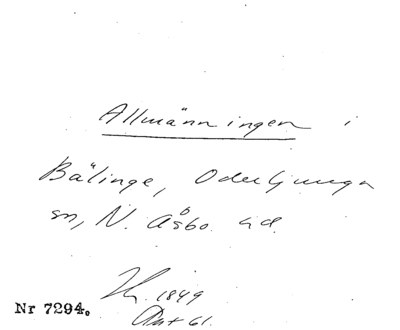 Allmänningen i
Bälinge, Oderljunga
sn, N. Åsbo hd.
1849
Nr 7294.
61.